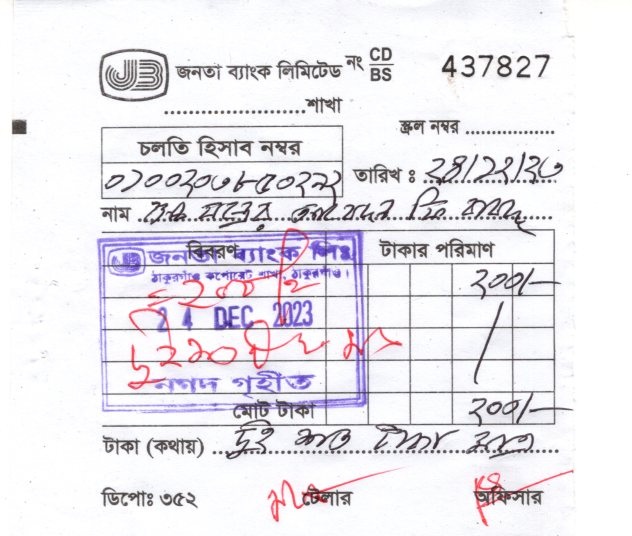 JB জনতা ব্যাংক লিমিটেড নং CD/BS 437827
....................শাখা
স্ক্রল নম্বর ................
চলতি হিসাব নম্বর
তারিখ : ২৪/১২/২৩
নাম আবেদন ফি বাবদ
বিবরণ টাকার পরিমাণ
জনতা ব্যাংক লিঃ
ঠাকুরগাঁও কর্পোরেট শাখা, ঠাকুরগাঁও।
২০০/-
24 DEC 2023
নগদ গৃহীত
মোট টাকা ২০০/-
টাকা (কথায়) দুই শত টাকা মাত্র
ডিপোঃ ৩৫২ টেলার অফিসার